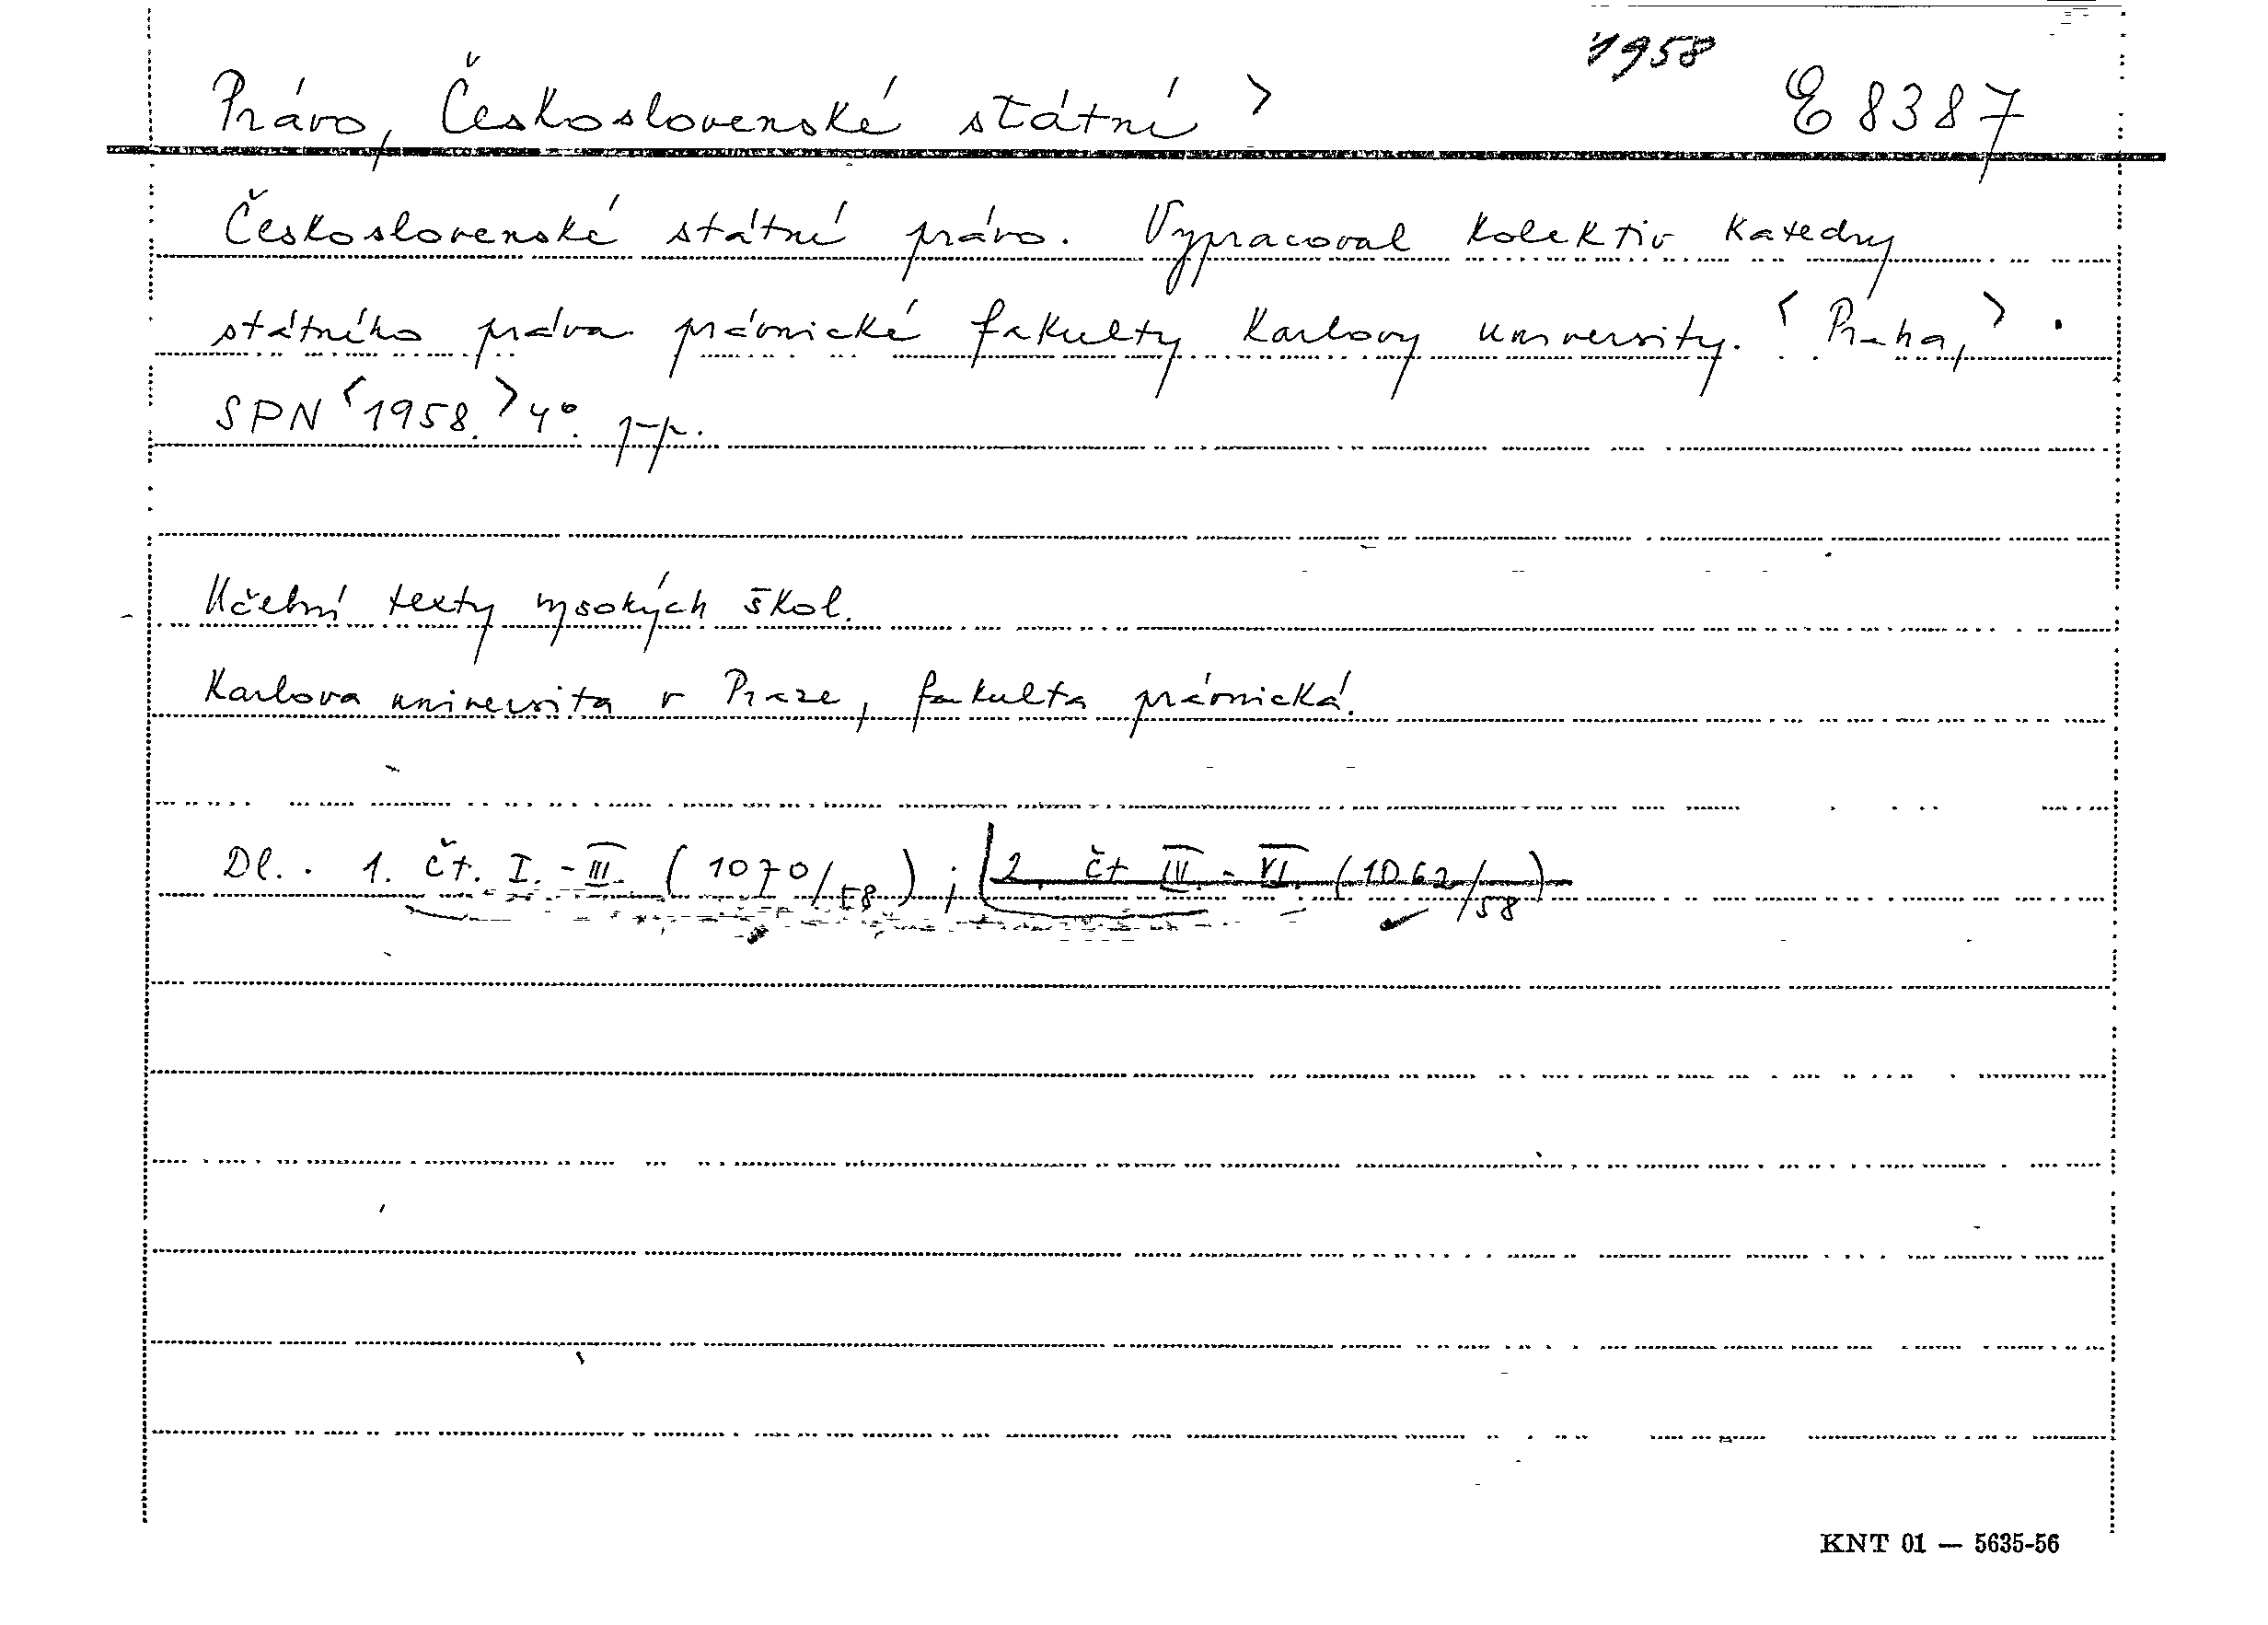 1958
Právo, Československé státní > E 8387
Československé státní právo. Vypracoval kolektiv katedry
státního práva právnické fakulty Karlovy university. <Praha,> .
SPN <1958.> 4°. p-p.
Učební texty vysokých škol.
Karlova universita v Praze, fakulta právnická.
Dl. . 1. čt. I. - III. (1070/58) ; 2. čt (1062/58)
KNT 01 — 5635-56